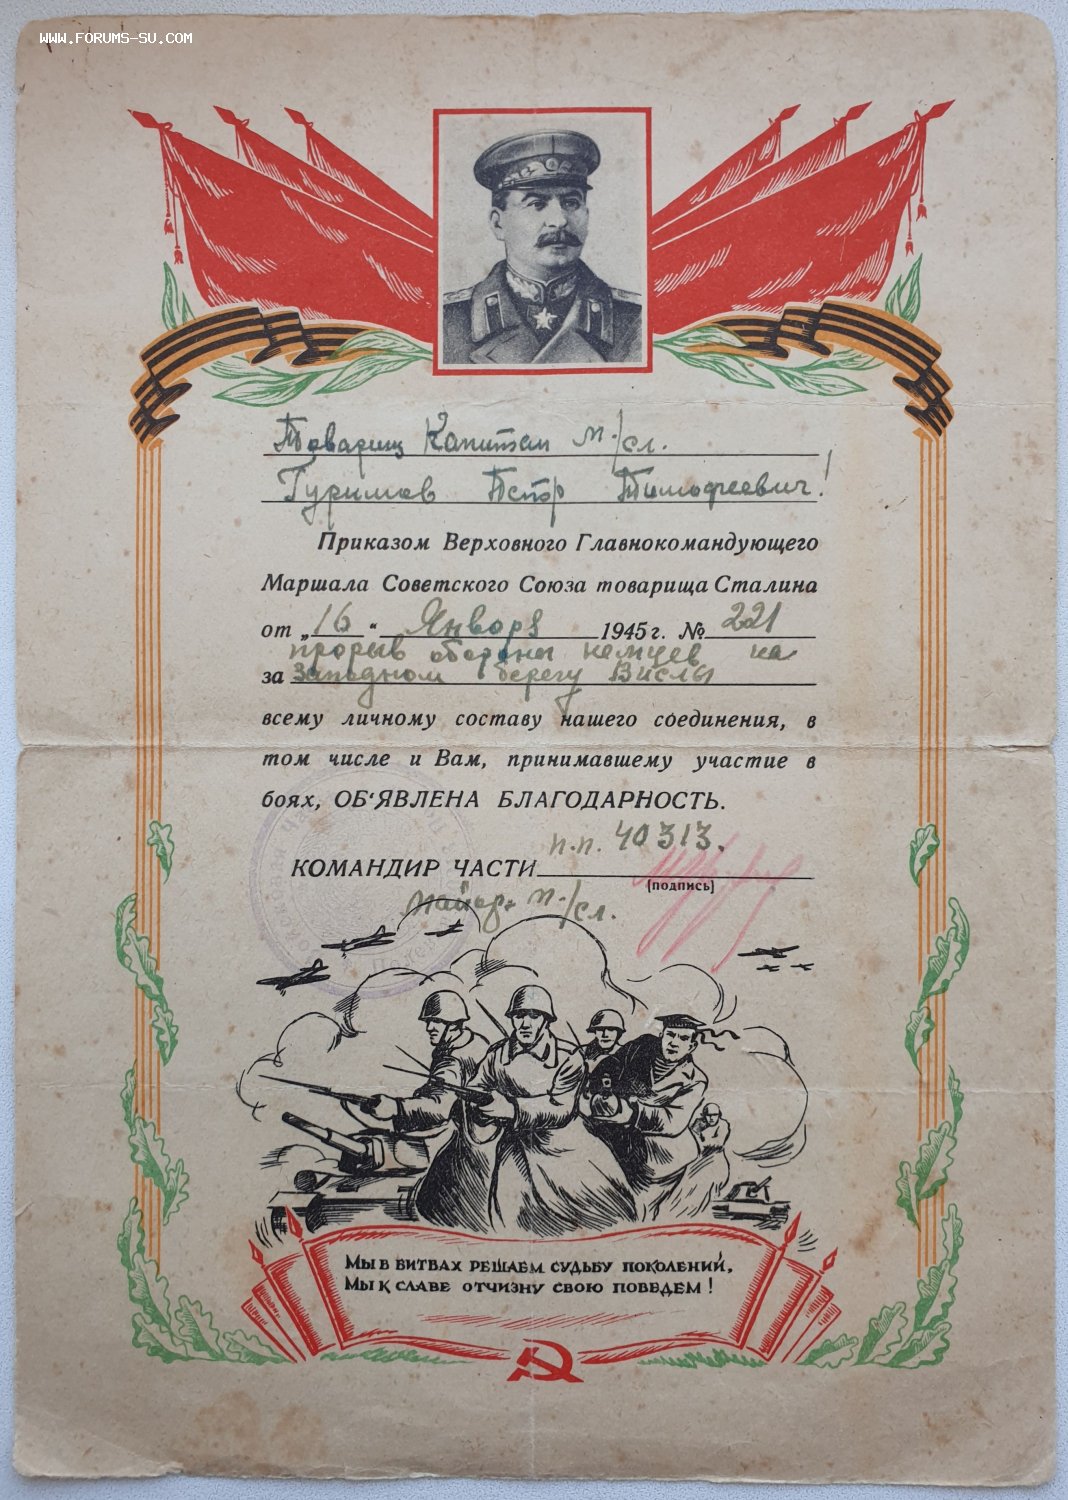 WWW.FORUMS-SU.COM
Товарищ Капитан м./сл.
Петр Тимофеевич!
Приказом Верховного Главнокомандующего
Маршала Советского Союза товарища Сталина
от „16“ Января 1945 г. № 221
прорыв обороны немцев на
за западном берегу Вислы
всему личному составу нашего соединения, в
том числе и Вам, принимавшему участие в
боях, ОБ'ЯВЛЕНА БЛАГОДАРНОСТЬ.
п.п. 40313.
КОМАНДИР ЧАСТИ
(подпись)
майор м./сл.
Мы в битвах решаем судьбу поколений,
Мы к славе отчизну свою поведем!